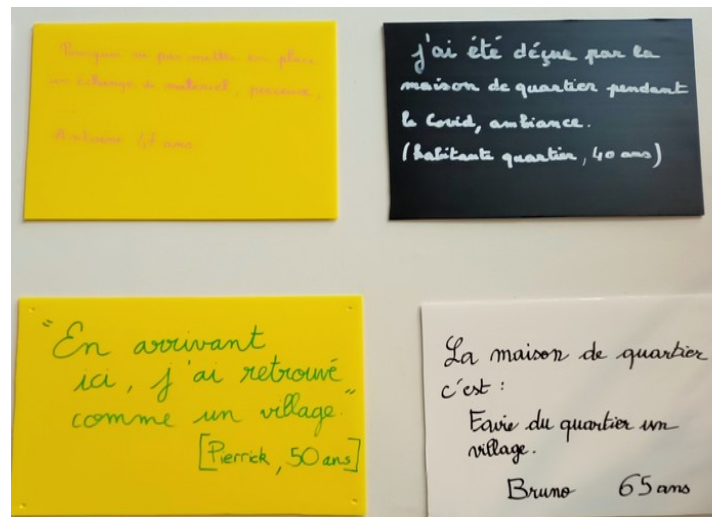 Pourquoi ne pas mettre en place
un échange de matériel, perceuse,
ans
j'ai été déçue par la
maison de quartier pendant
le Covid, ambiance.
(habitante quartier, 40 ans)
"En arrivant
ici, j'ai retrouvé
comme un village."
[Pierrick, 50 ans]
La maison de quartier
c'est :
Faire du quartier un
village.
Bruno 65 ans